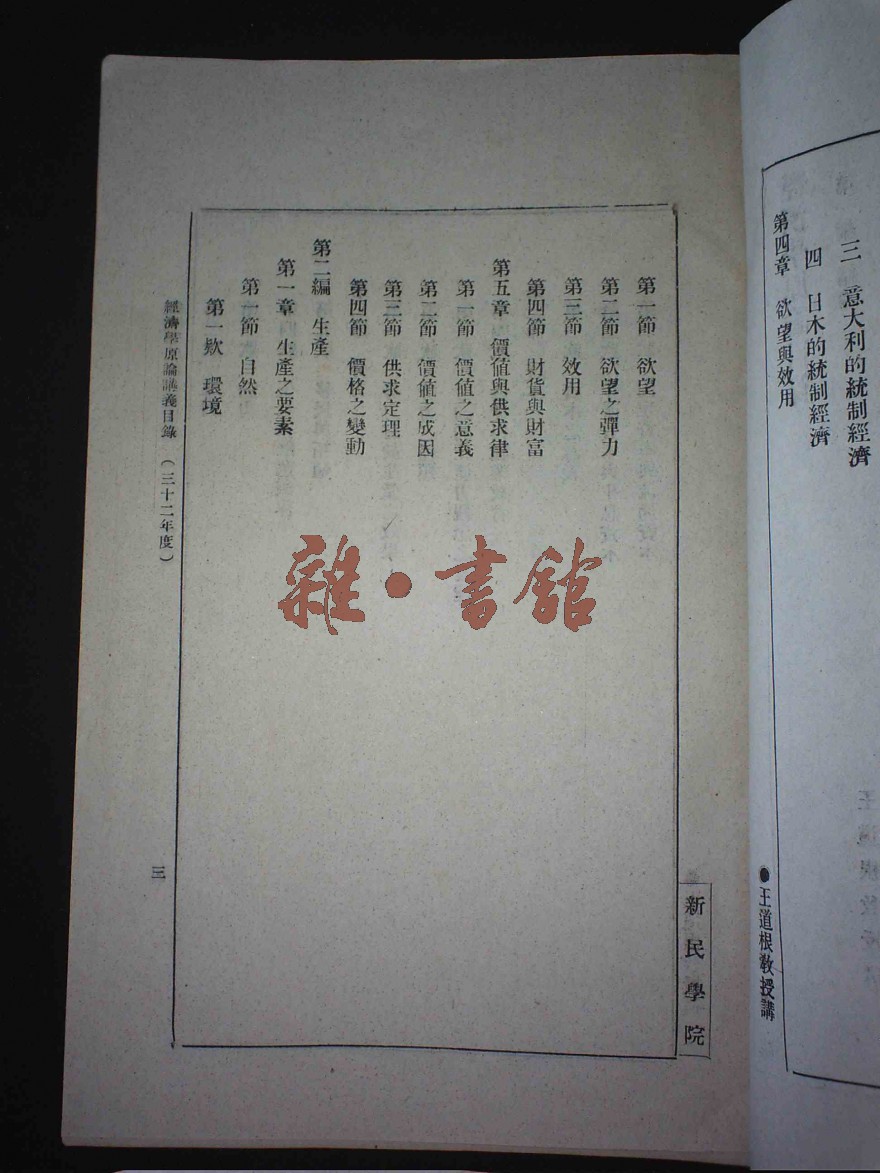 三　意大利的統制經濟
四　日木的統制經濟
第四章　欲望與效用
●王道根教授講
新民學院
第一節　欲望
第二節　欲望之彈力
第三節　效用
第四節　財貨與財富
第五章　價值與供求律
第一節　價值之意義
第二節　價值之成因
第三節　供求定理
第四節　價格之變動
第二編　生產
第一章　生產之要素
第一節　自然
第一欵　環境
經濟學原論講義目錄　(三十二年度)
三
雜·書館